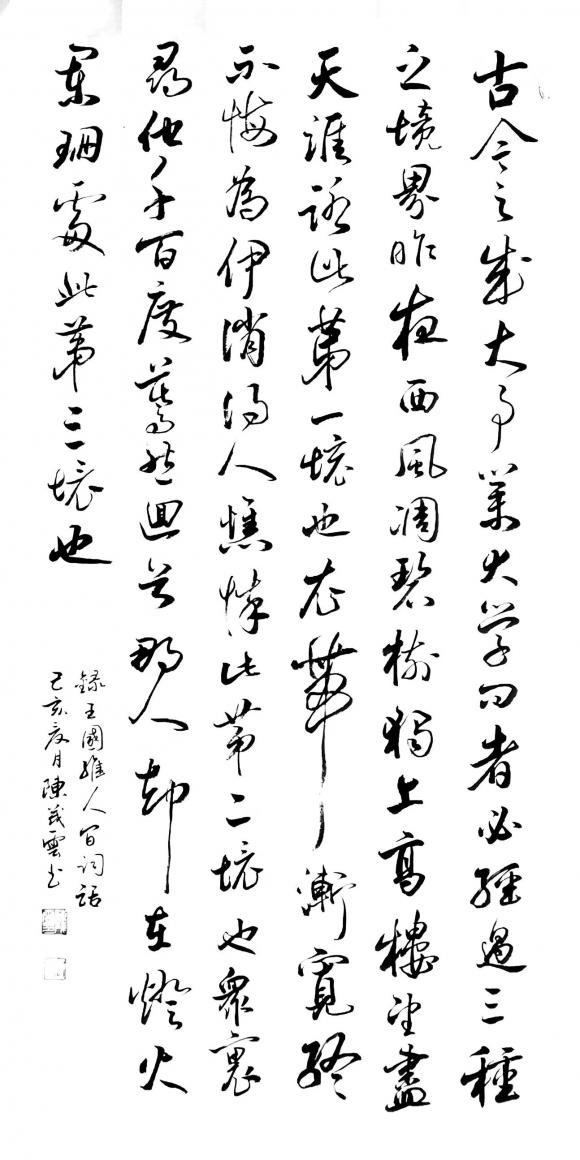 古今之成大事業大学问者必經過三種
之境界昨夜西風凋碧樹獨上高樓望盡
天涯路此第一境也衣帶漸寬終
不悔為伊消得人憔悴此第二境也眾裏
尋他千百度驀然迴首那人却在燈火
闌珊處此第三境也
録王國維人间词话
己亥夏月陳雲书